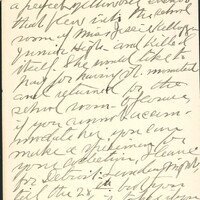 a perfect yellow
that flew into the school
room of Miss Jessie
Junior High and killed
itself. She would like to
pay for having it mounted
and returned for the
school room. Of course
if you cannot accom-
modate her, you can
make a specimen for
your collection, I leave
for Detroit Sunday night
till the 28th but you